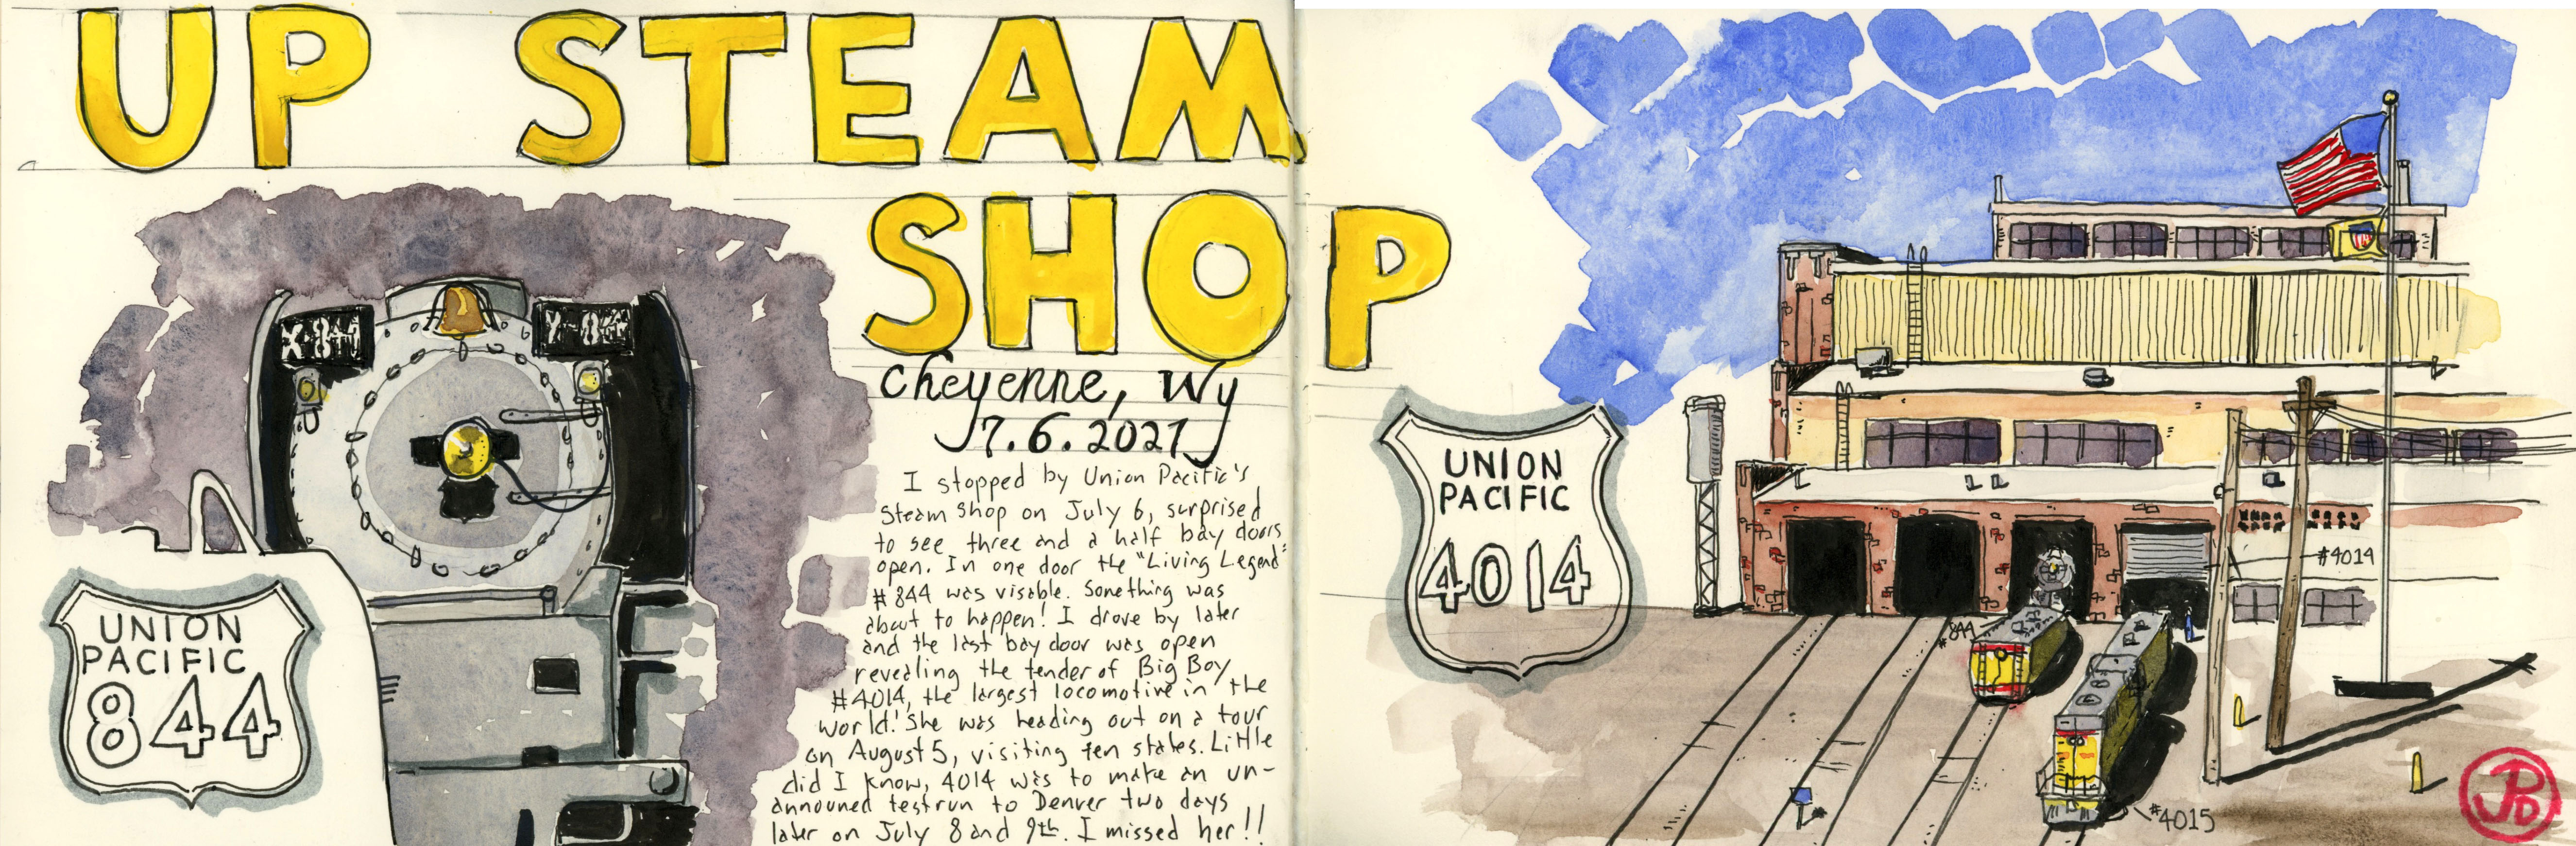 UP STEAM
SHOP
Cheyenne, Wy
7.6.2021
I stopped by Union Pacific's
Steam Shop on July 6, surprised
to see three and a half bay doors
open. In one door the "Living Legend"
#844 was visable. Something was
about to happen! I drove by later
and the last bay door was open
revealing the tender of Big Boy
#4014, the largest locomotive in the
world! She was heading out on a tour
on August 5, visiting ten states. Little
did I know, 4014 was to make an un-
announed test run to Denver two days
later on July 8 and 9th. I missed her!!
X-844
X-844
UNION
PACIFIC
844
UNION
PACIFIC
4014
#4014
#844
#4015
JPD